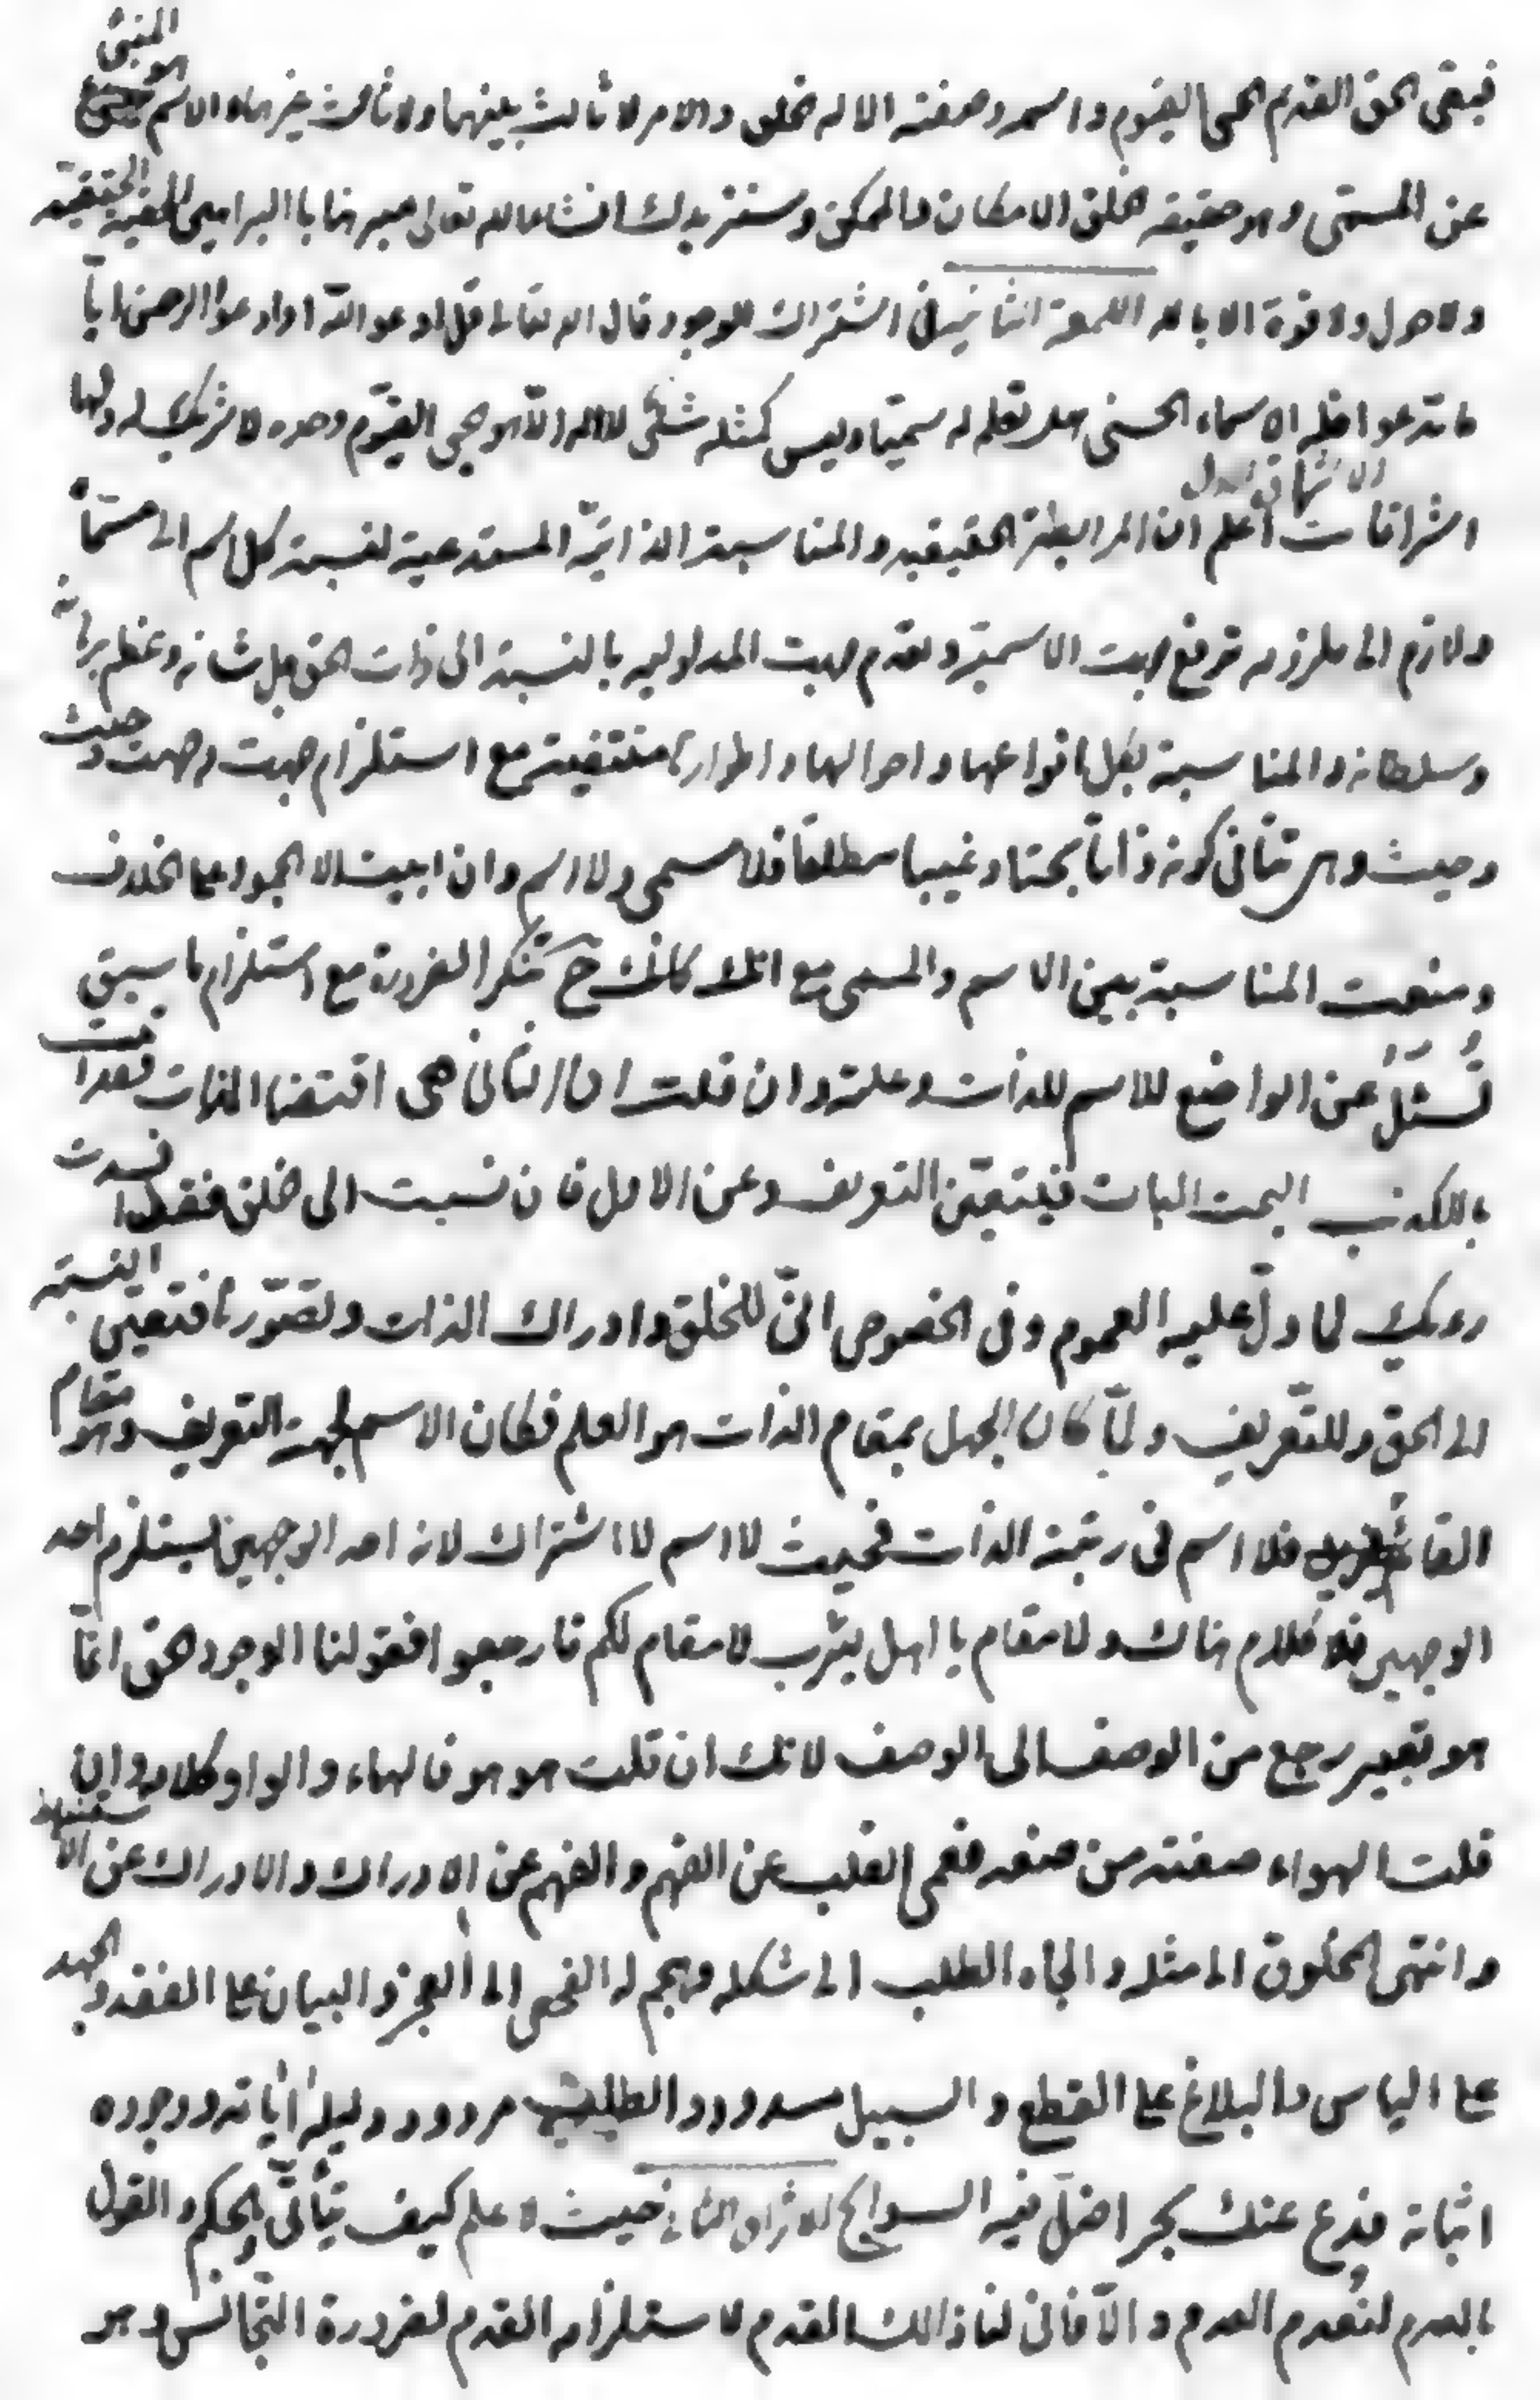 فبقى الحق القديم الحي القيوم واسمه وصفته الا له الخلق والامر لا ثالث بينهما ولا ثالث غيرهما والاسم هو المنبئ
عن المسمى وهو حقيقة خلق الامكان والممكن وسنزيدك انشاء الله تعالى مبرهنا بالبراهين الحقيقية
ولا حول ولا قوة الا بالله اللمعة الثانية في اشتراك الوجود قال الله تعالى قل ادعوا الله او ادعوا الرحمن ايا
ما تدعوا فله الاسماء الحسنى هل تعلم له سميا وليس كمثله شئ لا اله الا هو الحي القيوم وحده لا شريك له ولها
اشراقات الاشراق الاول اعلم ان الرابطة الحقيقيه والمناسبة الذاتية المستدعية لنسبة كل اسم الى مسماه
ولازم الى ملزومه ترفع جهت الاسمية وتقدم جهت المدلوليه بالنسبة الى ذات الحق جل شانه وعظم برهانه
وسلطانه والمناسبة بكل انواعها واحوالها واطوارها منتفية مع استلزام جهت وجهت وحيث
وحيث وهى تنافى كونه ذاتا بحتا وغيبا مطلقا فلا مسمى ولا اسم وان ابيت الا الجمود على الخلاف
ومنعت المناسبة بين الاسم والمسمى مع انك كانك ح تنكر الضرورة مع استلزام ما سبق
نسئل عن الواضع للاسم للذات وعلته وان قلت ان الثانى هى اقتضا الذات فقد اتيت
بالكذب البحت البات فيتعين التعريف وعن الاول فان نسبت الى خلق فقد افسدت
رويك لما دل عليه العموم وفى الخصوص انى للخلق وادراك الذات وتصورها فتعين النسبة
الى الحق وللتعريف ولما كان الجهل بمقام الذات هو العلم فكان الاسم لجهت التعريف وهو مقام
القائم فلا اسم فى رتبة الذات فحيث لا اسم لا اشتراك لانه احد الوجهين يستلزم احد
الوجهين فلا كلام هناك ولا مقام يا اهل يثرب لا مقام لكم فارجعوا فقولنا الوجود حق انما
هو تعبير رجع من الوصف الى الوصف لانك ان قلت هو هو فالهاء والواو كلامه وان
قلت الهواء صفته من صنعه فعمى القلب عن الفهم والفهم عن الادراك والادراك عن الاستنباط
وانتهى المخلوق الى مثله والجاه الطلب الى شكله وهجم له الفحص الى العجز والبيان على الفقد والجهد
على الياس والبلاغ على القطع والسبيل مسدود والطلب مردود دليله اياته ووجوده
اثباته فدع عنك بحرا ضل فيه السوابح الاشراق الثانى حيث لا علم كيف يتأتى الحكم والقول
بالعدم لتقدم العدم والا فانى لنا ذالك القدم لاستلزامه القدم لضرورة التجانس وهو